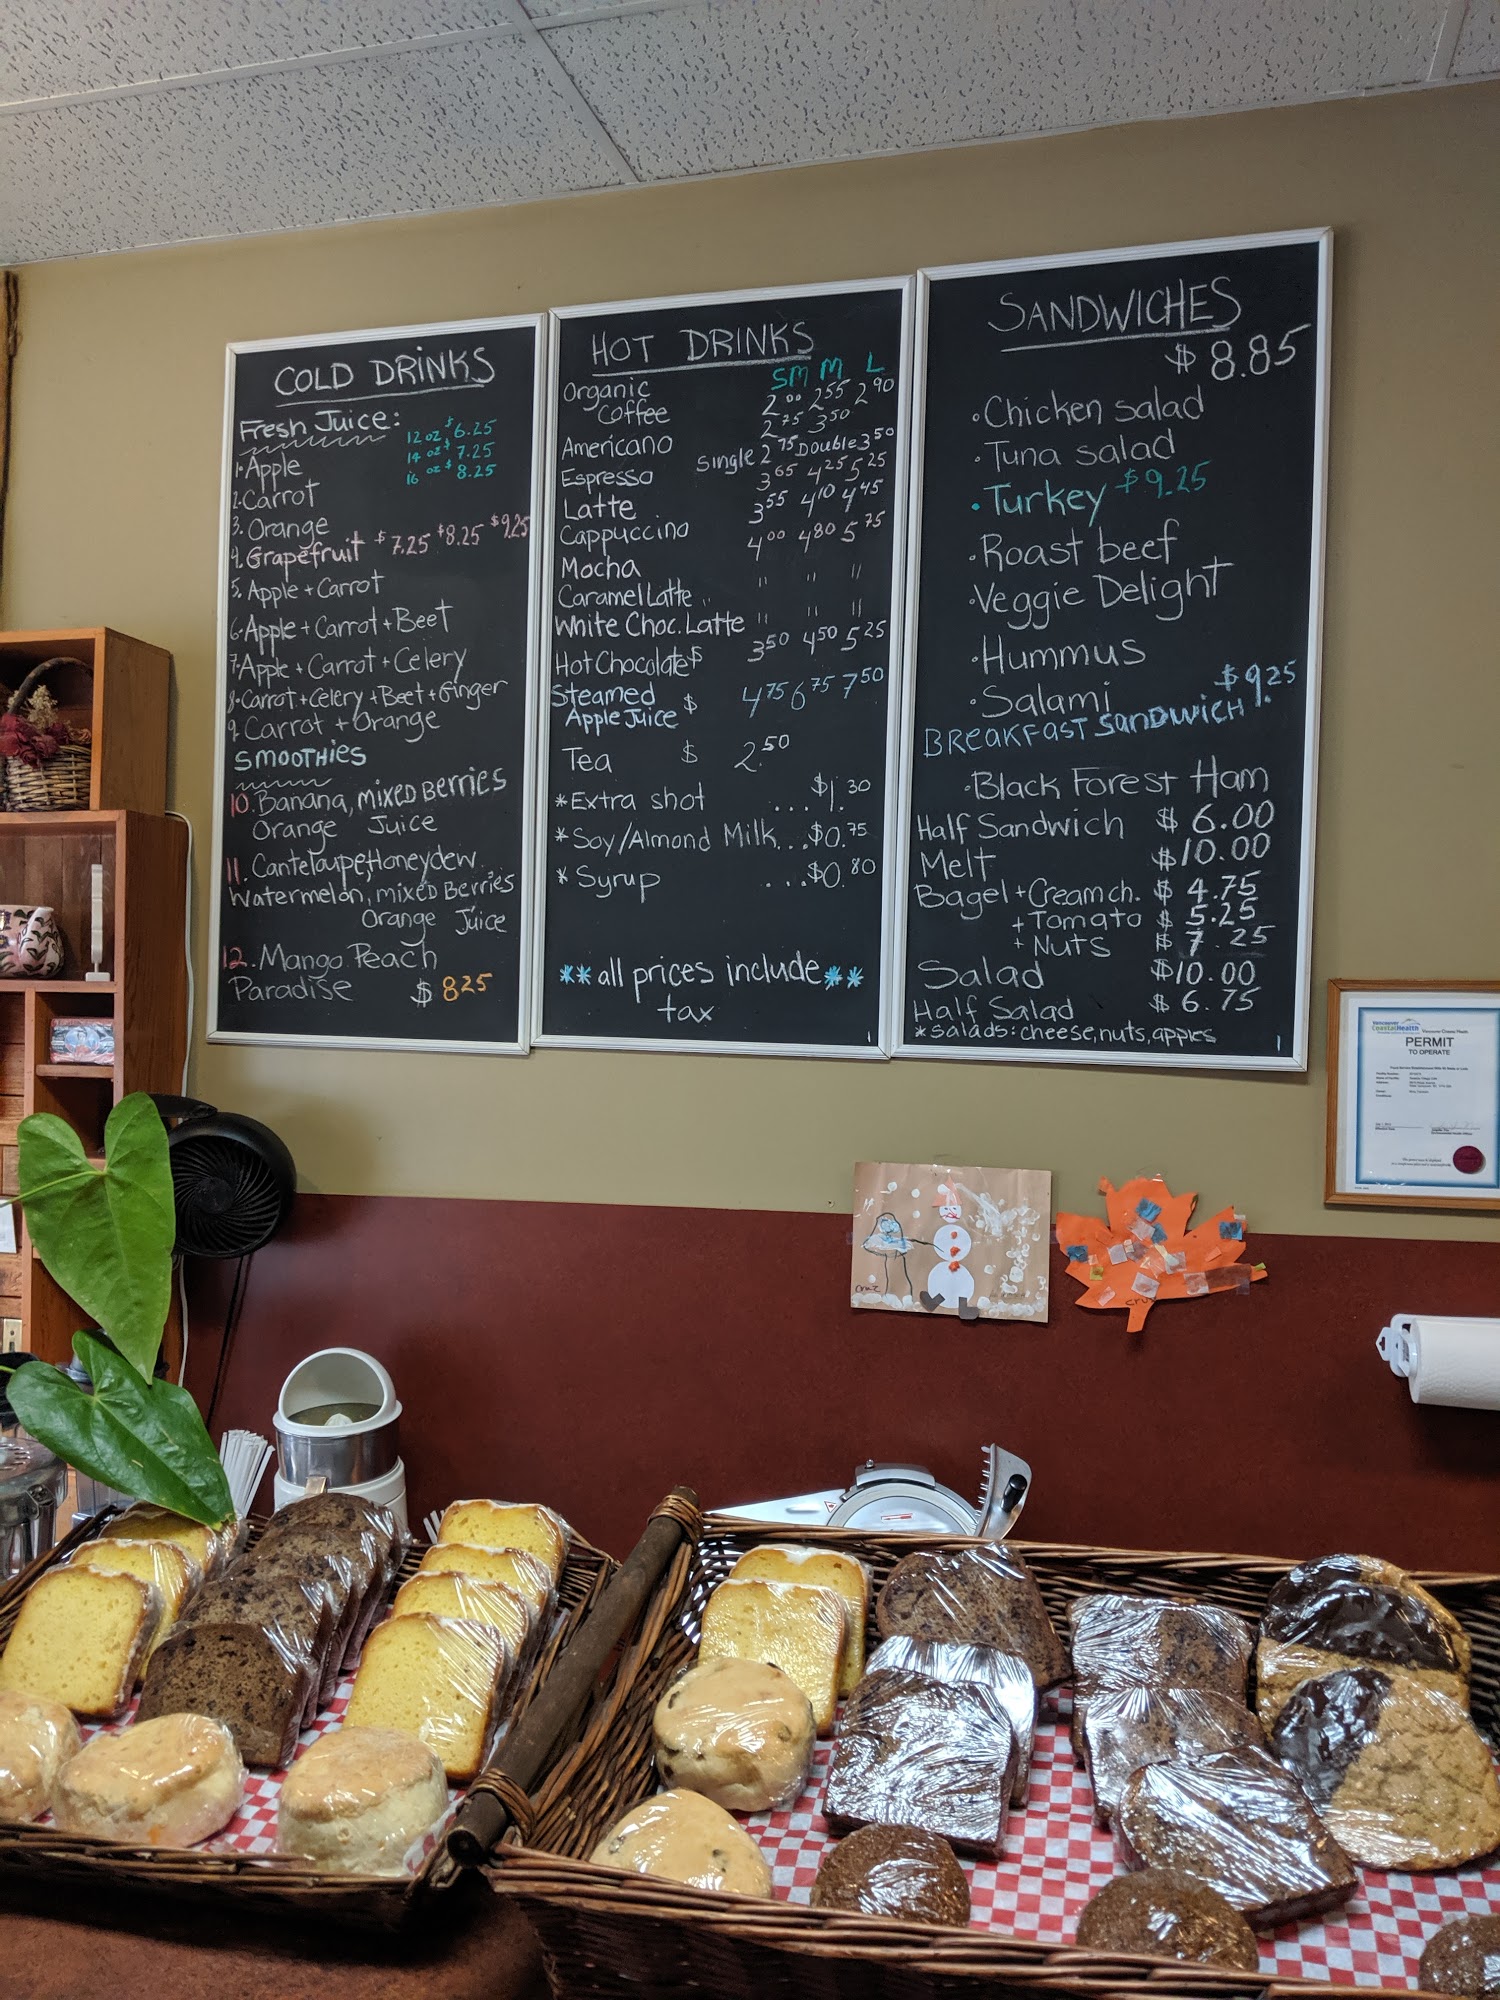 COLD DRINKS
Fresh Juice:
12 oz $6.25
14 oz $7.25
16 oz $8.25
1. Apple
2. Carrot
3. Orange
4. Grapefruit $7.25 $8.25 $9.25
5. Apple + Carrot
6. Apple + Carrot + Beet
7. Apple + Carrot + Celery
8. Carrot + Celery + Beet + Ginger
9. Carrot + Orange
SMOOTHIES
10. Banana, MIXED BERRIES
Orange Juice
11. Canteloupe, Honeydew
Watermelon, MIXED BERRIES
Orange Juice
12. Mango Peach
Paradise $ 8.25
HOT DRINKS
SM M L
Organic
Coffee 2.00 2.55 2.90
Americano 2.75 3.50
Espresso Single 2.75 Double 3.50
Latte 3.65 4.25 5.25
Cappuccino 3.55 4.10 4.45
Mocha 4.00 4.80 5.75
Caramel Latte " " "
White Choc. Latte " " "
Hot Chocolate $ 3.50 4.50 5.25
Steamed
Apple Juice $ 4.75 6.75 7.50
Tea $ 2.50
*Extra shot ...$1.30
*Soy/Almond Milk...$0.75
*Syrup ...$0.80
**all prices include**
tax
1
SANDWICHES
$8.85
•Chicken salad
•Tuna salad
•Turkey $9.25
•Roast beef
•Veggie Delight
•Hummus
•Salami
BREAKFAST SANDWICH $9.25
•Black Forest Ham
Half Sandwich $ 6.00
Melt $10.00
Bagel + Cream ch. $ 4.75
+ Tomato $ 5.25
+ Nuts $ 7.25
Salad $10.00
Half Salad $ 6.75
*salads: cheese, nuts, apples
1
Vancouver
CoastalHealth
PERMIT
TO OPERATE